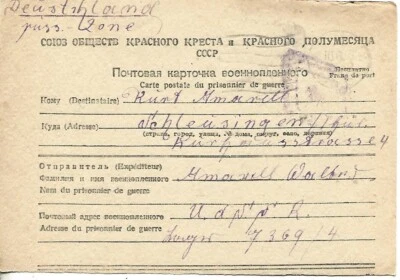 Deutschland
russ. Zone
СОЮЗ ОБЩЕСТВ КРАСНОГО КРЕСТА и КРАСНОГО ПОЛУМЕСЯЦА
СССР
Почтовая карточка военнопленного
Carte postale du prisonnier de guerre
Бесплатно
Franc de port
Кому (Destinataire) Kurt Amarell
Куда (Adresse) Schleusingen/Thür.
(страна, город, улица, № дома, округ, село, деревня)
4
Отправитель (Expéditeur)
Фамилия и имя военнопленного Amarell
Nom du prisonnier de guerre
Почтовый адрес военнопленного U.d.S.S.R.
Adresse du prisonnier de guerre Lager 7369/4